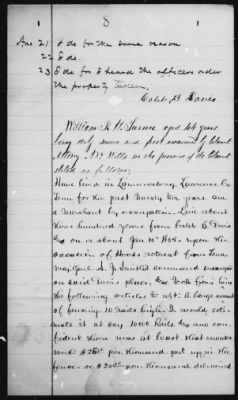 8
Ans 21 I do for the same reason
22 I do.
23 I do for I heard the officers order
the property taken.
Caleb B Davis
William R. H. Turner aged 44 years
being duly sworn and first examined by Claimt
Attorney A W Wills in the presence of the Claimt
stated as follows;
Have lived in Lawrenceburg, Lawrence Co
Tenn for the past twenty five years. am
a Merchant by occupation. Live about
three hundred years from Caleb B Davis
and on or about Jan 10th 1865. upon the
occasion of Hoods retreat from Tenn
Maj Genl A. J. Smiths command encamped
on said Davis place. and took from him
the following articles to wit: A large amount
of fencing 10 rails high. I would esti-
mate it at say 10000 Rails and am con-
fident there was at least that number
worth $25.00 per thousand put up in the
fence. or $20.00 per thousand delivered